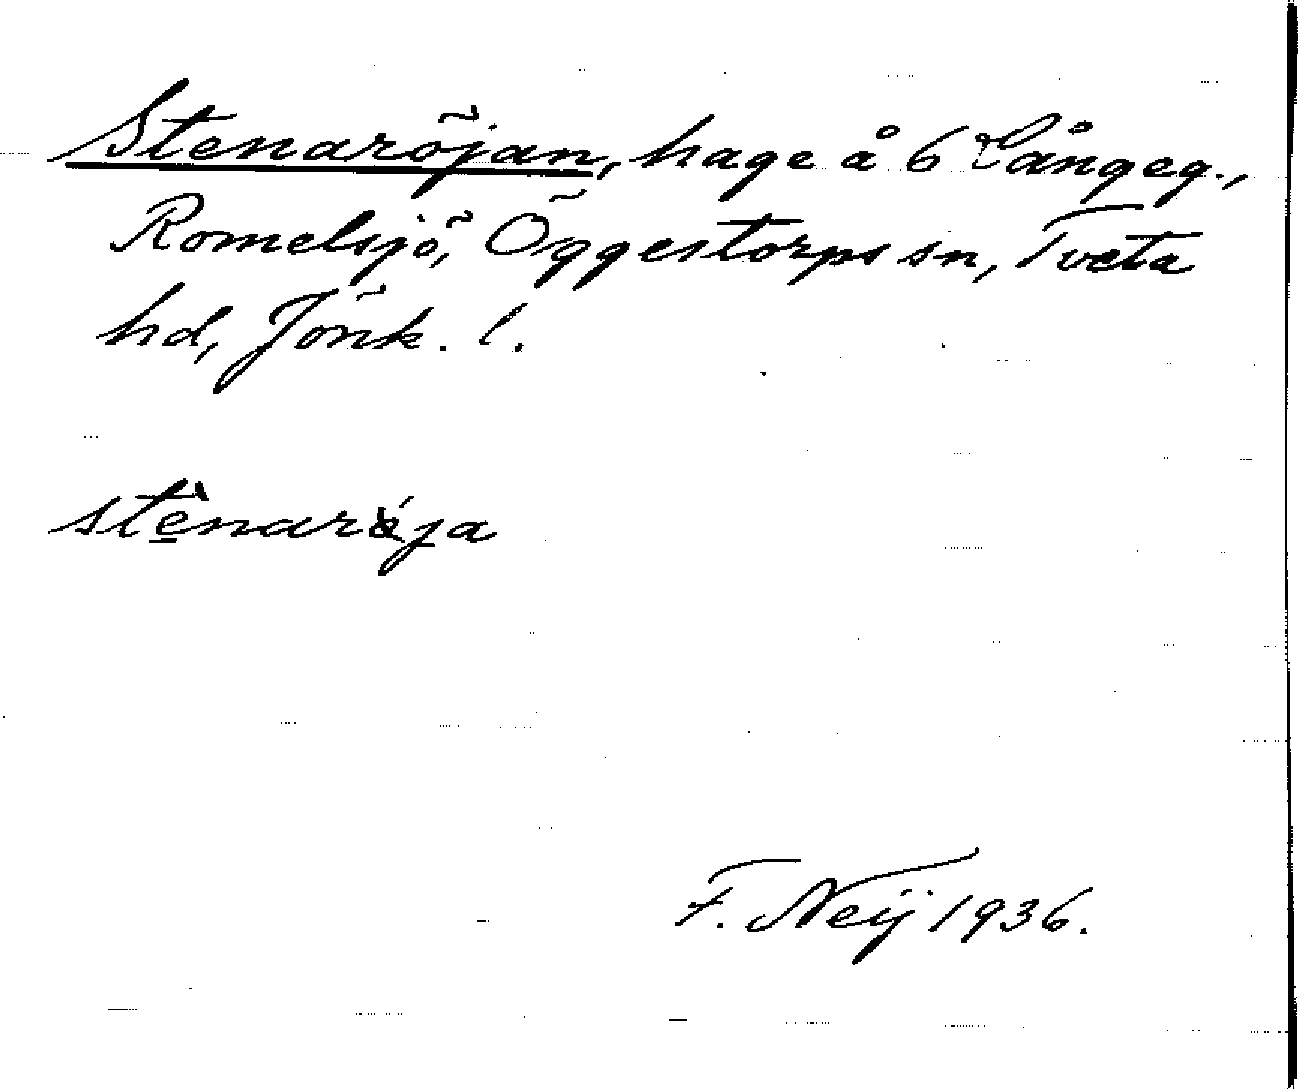 Stenaröjan, hage å 6 Långeg.,
Romelsjö, Öggestorps sn, Tveta
hd, Jönk. l.
F. Neij 1936.